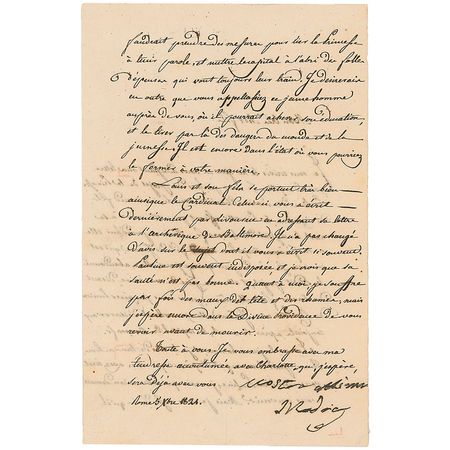 faudrait prendre des mesures pour lier la Princesse
à tenir parole, et mettre le capital à l'abri des folles
dépenses qui vont toujours leur train. Je désirerais
en outre que vous appellassiez ce jeune homme
auprès de vous, où il pourrait achever son éducation
et le tirer par là des dangers du monde et de la
jeunesse. Il est encore dans l'état où vous pourriez
le former à votre manière.
Louis et son fils se portent très bien
ainsi que le Cardinal. Celui-ci vous a écrit
dernièrement par en adressant sa lettre
à l'archevêque de Baltimore. Je n'ai pas changé
d'avis sur le dont il vous a écrit si souvent.
Pauline est souvent indisposée et je vois que sa
santé n'est pas bonne. Quant à moi je souffre
par fois des maux de tête et des rhumes, mais
j'espère encore dans la Divine Providence de vous
revoir avant de mourir.
Toute à vous. Je vous embrasse avec ma
tendresse accoutumée, avec Charlotte, qui j'espère,
sera déjà avec vous
Rome 1821.
Madre